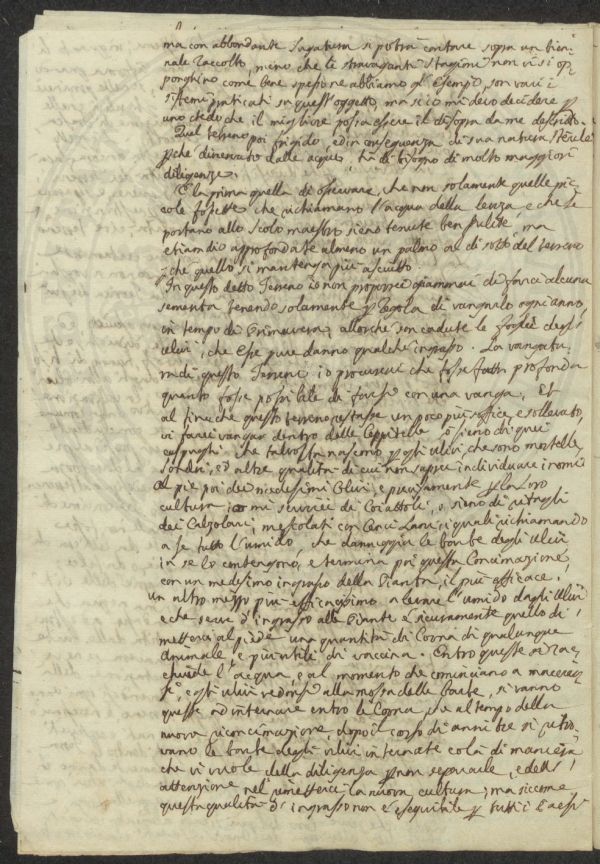 ma con abbondante lugatura si potrà contare sopra un bien,
nale raccolto, meno che le stravaganti stagioni non vi si op,
ponghino come bene spesso ne abbiamo gl' Esempi, son varii i
sistemi praticati su quest'oggetto, ma se io mi devo decidere p
uno credo che il migliore possa essere il di sopra da me descritto.
Quel terreno poi frigido, ed in conseguenza di sua natura sterile
pche dinervato dalle acque, ha di bisogno di molto maggiori
diligenze.
E la prima quella di osservare, che non solamente quelle pic,
cole fossette che richiamano l'acqua della lenza, e che la
portano allo scolo maestro sieno tenute ben pulite, ma
etiamdio approfondate almeno un palmo al di sotto del terreno
che quello si mantenga più asciutto
In questo detto Terreno io non proporrei giammai di farci alcuna
sementa tenendo solamente p regola di vangarlo ogni anno,
in tempo di Primavera, allorche son cadute le foglie degl'
ulivi, che Esse pure danno qualche ingrasso. La vangatu,
ra di questo Terreno io procurerei che fosse fatta profonda
quanto fosse possibile di farsi con una vanga, Et
al fine che questo terreno restasse un poco più soffice, e sollevato,
vi farei vangar dentro delle Ceppitelle, o sieno di quei
cespugli che talvolta nascono p gli ulivi, che sono mortelle,
sondri, ed altre qualità di cui non saprei individuare i nomi
Al piè poi dei medesimi Olivi, e precisamente p la loro
cultura, io mi servirei di Coiattoli, o sieno di ritagli
dei Calzolari, mescolati con Cenci Lani, i quali richiamando
a se tutto l'umido, che danneggia le barbe degli ulivi
in se lo contengono, e termina poi questa Concimazione
con un medesimo ingrasso della Pianta, il più efficace.
un altro mezzo più efficacissimo a levare l'umido dagli Ulivi
e che serve d'ingrasso alle Piante è sicuramente quello di
metterci al piede una quantità di Corna di qualunque
Animale e più utili di vaccina. Entro queste si rac
chiude l'acqua, e al momento che cominciano a macerar
si, e gli ulivi vedonsi alla mossa delle barbe, si vanno
queste ad internare entro le Corna, che al tempo della
nuova riconcimazione, dopo il corso di anni tre si ritro,
vano le barbe degli ulivi internate colà di maniera
che vi vuole della diligenza p non separarle, e dell'
attenzione nel rimetterci la nuova cultura; ma siccome
questa qualità d' ingrasso non è eseguibile p tutti i paesi